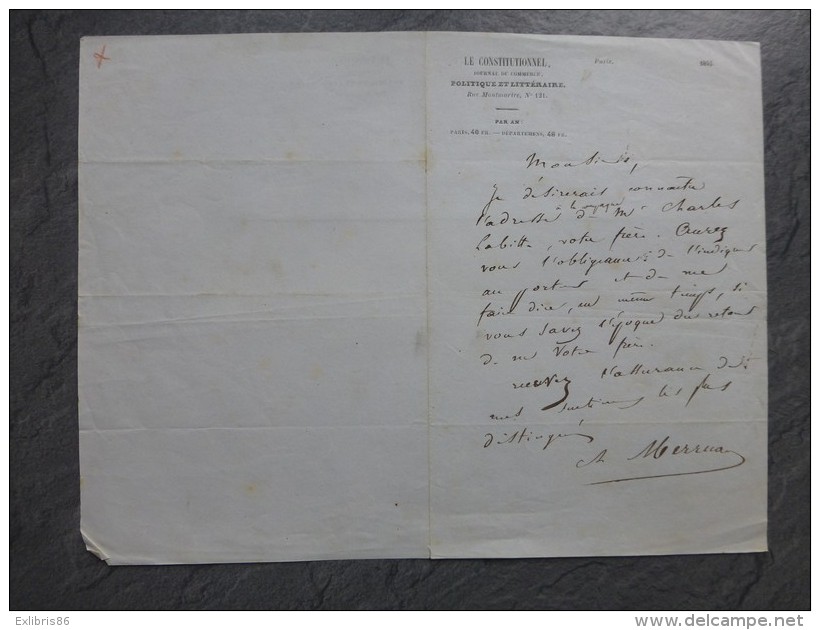 LE CONSTITUTIONNEL,
JOURNAL DU COMMERCE,
POLITIQUE ET LITTÉRAIRE,
Rue Montmartre, N° 121.
PAR AN:
PARIS, 40 FR. — DÉPARTEMENS, 48 FR.
Paris,
Monsieur,
Je désirerais connaître
à la campagne
l'adresse de Mr Charles
Labitte, votre frère. Aurez
vous l'obligeance de l'indiquer
au porteur et de me
faire dire, en même temps, si
vous savez l'époque du retour
de mr votre frère.
recevez l'assurance de
mes sentimens les plus
distingués
Ch Merruau
Exlibris86
www.delcampe.net